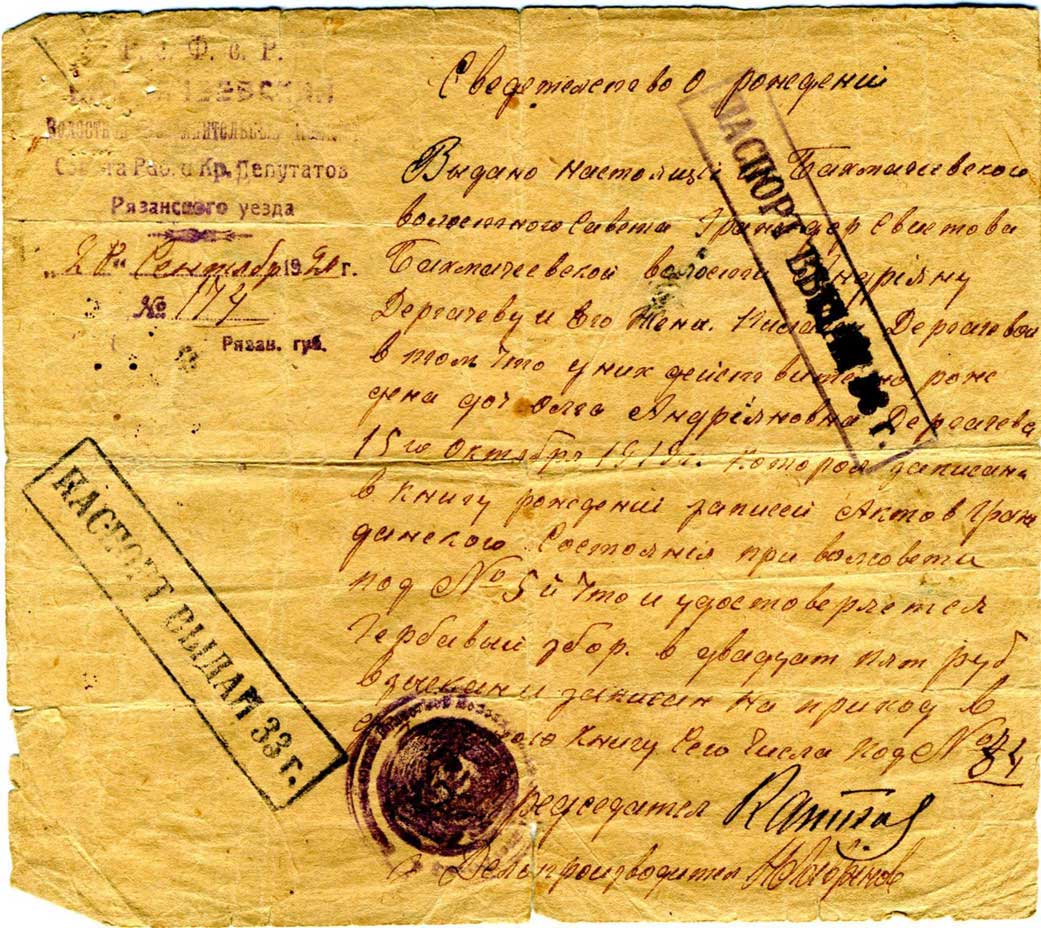 Р. с. Ф. с. Р.
Волостной Исполнительный
Совета Раб. и Кр. Депутатов
Рязанского уезда
"28" Сентябр 192 г.
№ 174
Рязан. губ.
Сведетелство о рождениі
Выдано настоящиі Бахмачеевского
волостного Совета Гражд
Бахмачеевской волости Андріяну
Дергачеву и Его жена. Дергачевой
в том Что у них действително рож
дена доч Олга Андріяновна Дергачева
15го Октябр 191 г. Которая записана
в Книгу рождениі записей Актов Граж
данского Состояния при волсовети
под № 5 й Что и удостоверяется
Гербавый збор. в двадцат пят руб
взыскан и записан на приход в
Книгу Сего Числа под № 84
Председател
Делопроизводител
ПАСПОРТ ВЫДАН 33 г.
ПАСПОРТ ВЫДАН г.